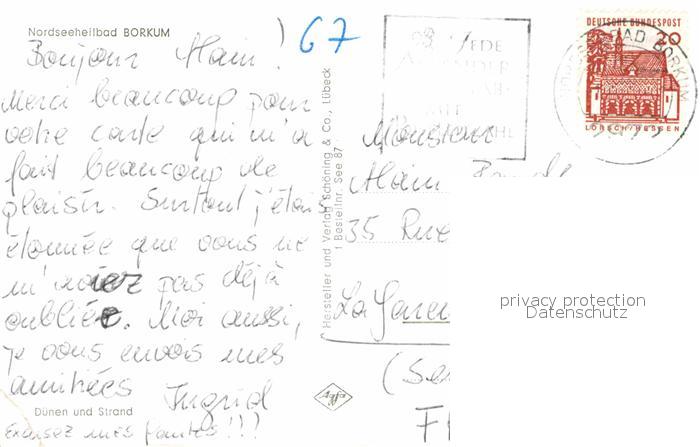 Nordseeheilbad BORKUM
Bonjour Alain!
67
Merci beaucoup pour
votre carte qui m'a
fait beaucoup de
plaisir. Surtout j'étais
étonnée que vous ne
m'aviez pas déjà
oubliée. Moi aussi,
je vous envois mes
amitiées Ingrid
Dünen und Strand
Excusez mes fautes!!!
Hersteller und Verlag Schöning & Co., Lübeck
1 Bestellnr. See 87
Agfa
JEDE
DEUTSCHE BUNDESPOST
20
LORSCH/HESSEN
BAD BORKUM
Monsieur
Alain
35 Rue
La Garen
(Se
F
privacy protection
Datenschutz